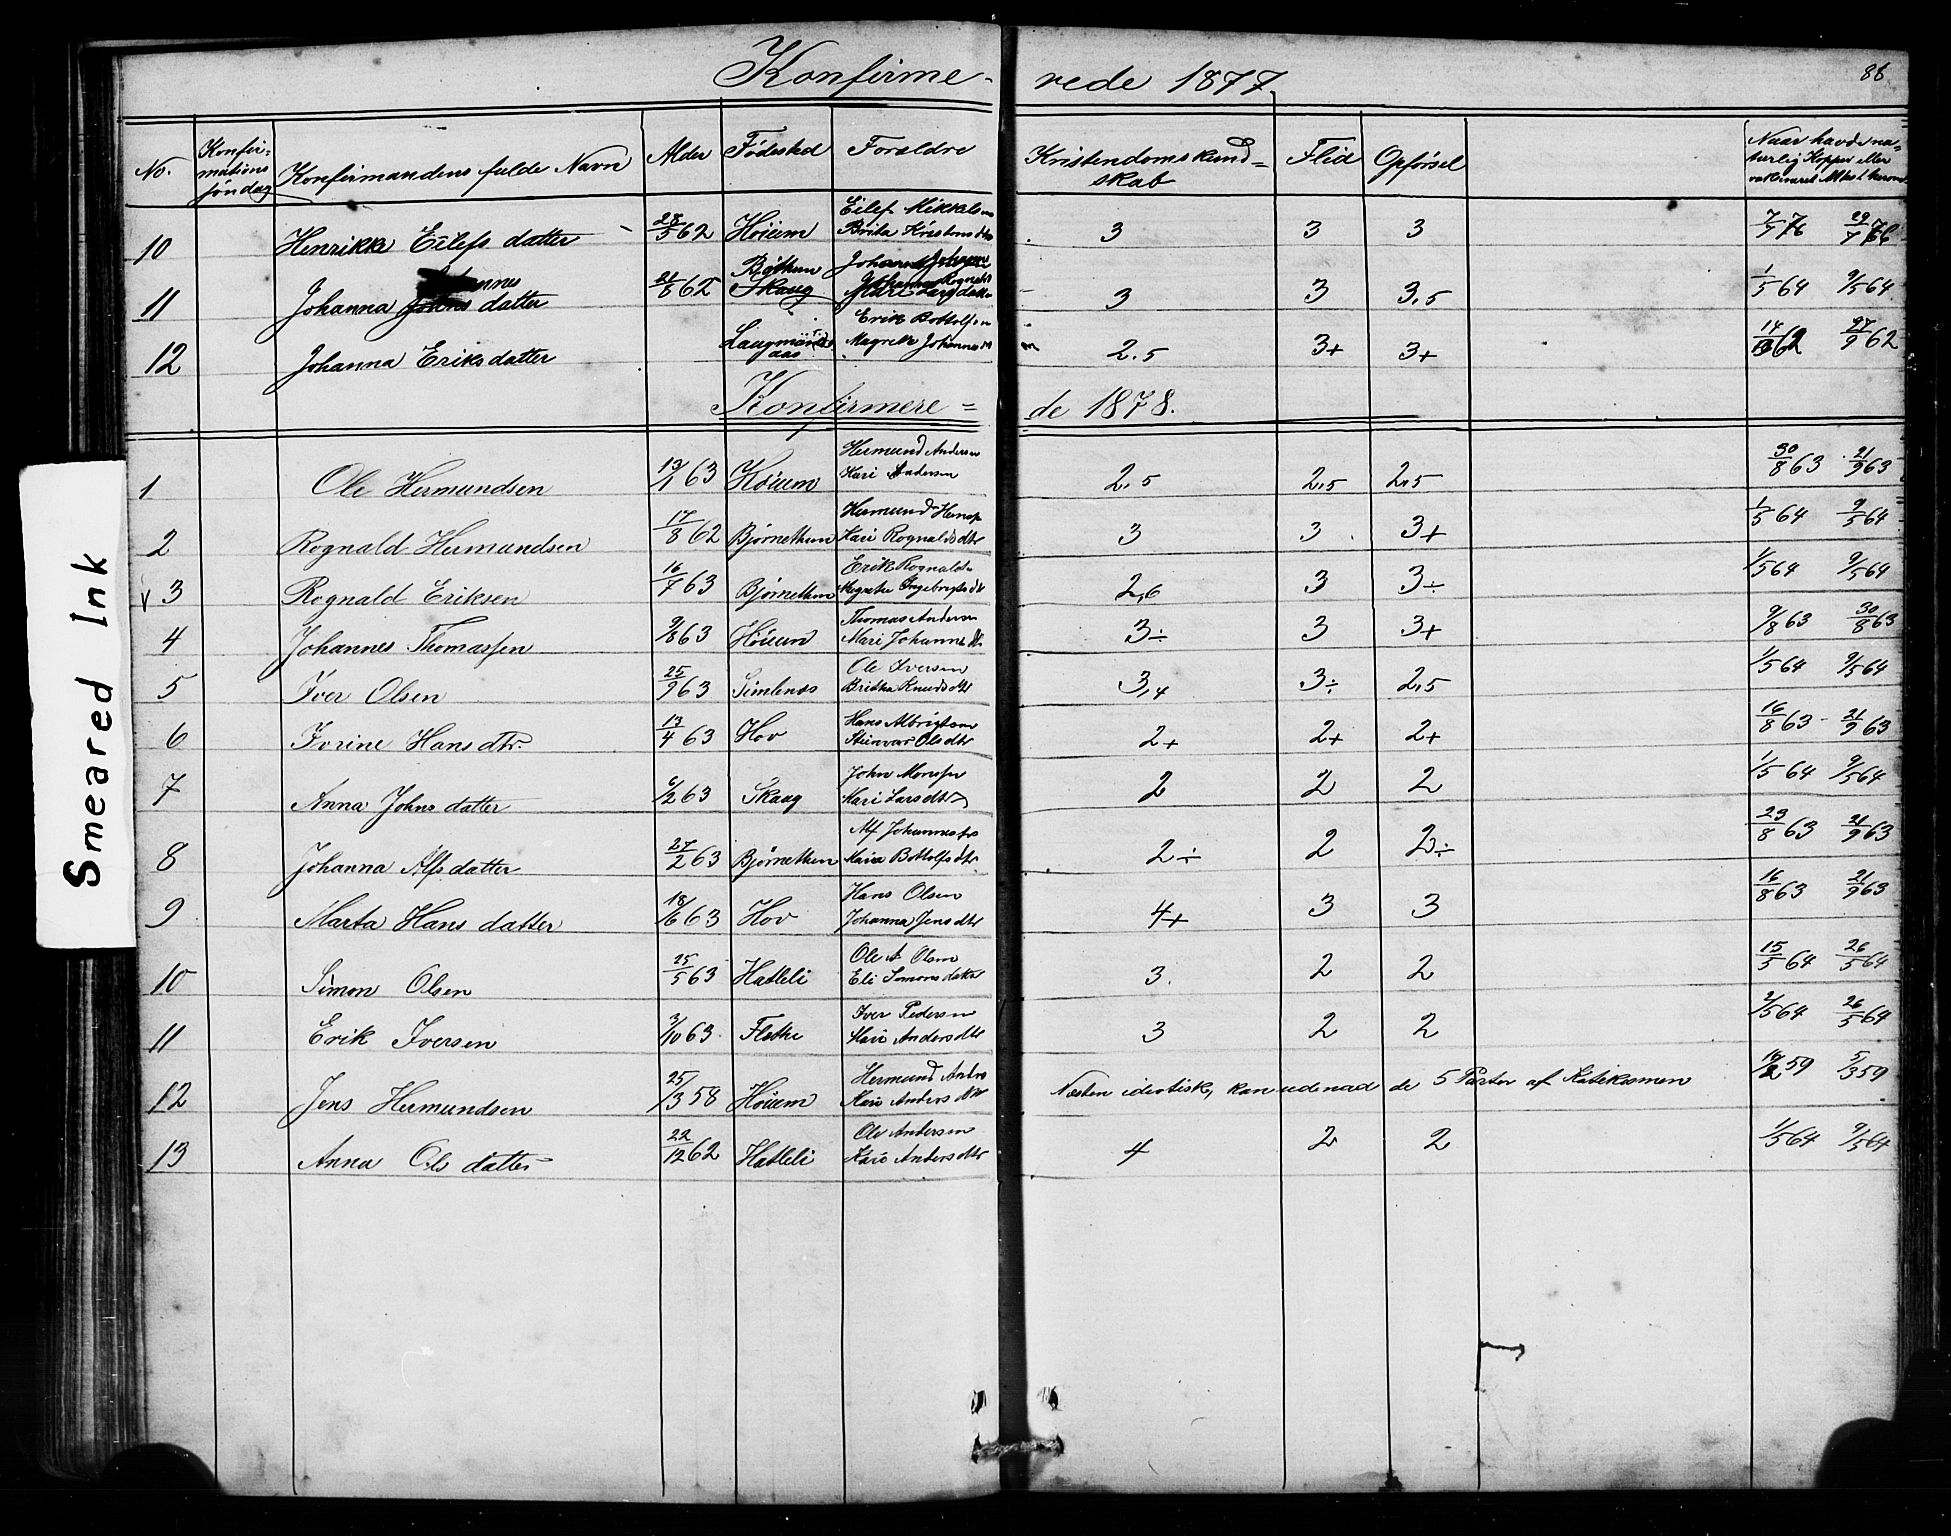 Smeared Ink
Konfirme- rede 1877. 88
No. Konfir=mations søndag Konfirmandens fulde Navn Alder Fødested Forældre Kristendomskund=skab Flid Opførsel Naar havde na=turlig Kopper eller
10 Henrikka Eilefs datter 28/5 62 Høium Eilef Mikkels Brita Kristens dtr 3 3 3 7/7 76
11 Johanna datter 21/8 62 Skaug 3 3 3,5 1/5 64 9/5 64
12 Johanna Eriksdatter Erik Bottolfsn Magrete Johannesdt 2,5 3+ 3+ 27/9 62
Konfirmere= de 1878.
1 Ole Hermundsen 13/1 63 Høium Hermund Andersen Kari Andersen 2,5 2,5 2,5 30/8 63 21/9 63
2 Rognald Hermundsen 17/8 62 Bjørnethun Hermund Kari Rognalds dtr 3 3 3+ 1/5 64 9/5 64
v 3 Rognald Eriksen 16/7 63 Bjørnethun Erik Rognalds Magrethe Ingebrigts dtr 2,6 3 3÷ 1/5 64 9/5 64
4 Johannes Thomassen 9/8 63 Høium Thomas Andersen Mari Johannes dtr 3÷ 3 3+ 9/8 63 30/8 63
5 Iver Olsen 25/9 63 Simlenæs Ole Iversen Britha Knuds dtr 3,4 3÷ 2,5 1/5 64 9/5 64
6 Ivrine Hans dtr. 13/4 63 Hov Hans Albrigtsen Steinvor Ols dtr 2+ 2+ 2+ 16/8 63 21/9 63
7 Anna Johns datter 6/2 63 Skaug John Monssen Mari Lars dtr 2 2 2 1/5 64 9/5 64
8 Johanna Alfs datter 27/2 63 Bjørnethun Alf Johannes Bottolfs dtr 2÷ 2 2÷ 23/8 63 21/9 63
9 Marta Hans datter 18/6 63 Hov Hans Olsen Johanna Jens dtr 4+ 3 3 16/8 63 21/9 63
10 Simon Olsen 25/5 63 Hatleli Ole A Olsen Eli Simons datter 3. 2 2 15/5 64 26/5 64
11 Erik Iversen 3/10 63 Flathe Iver Pedersen Mari Anders dtr 3 2 2 2/5 64 26/5 64
12 Jens Hermundsen 25/3 58 Høium Hermund Anders Kari Anders dtr Næsten idiotisk, kan udenad de 5 Parter af Katekismen 59 5/3 59
13 Anna Ols datter 22/12 62 Hatleli Ole Andersen Kari Anders dtr 4 2 2 1/5 64 9/5 64